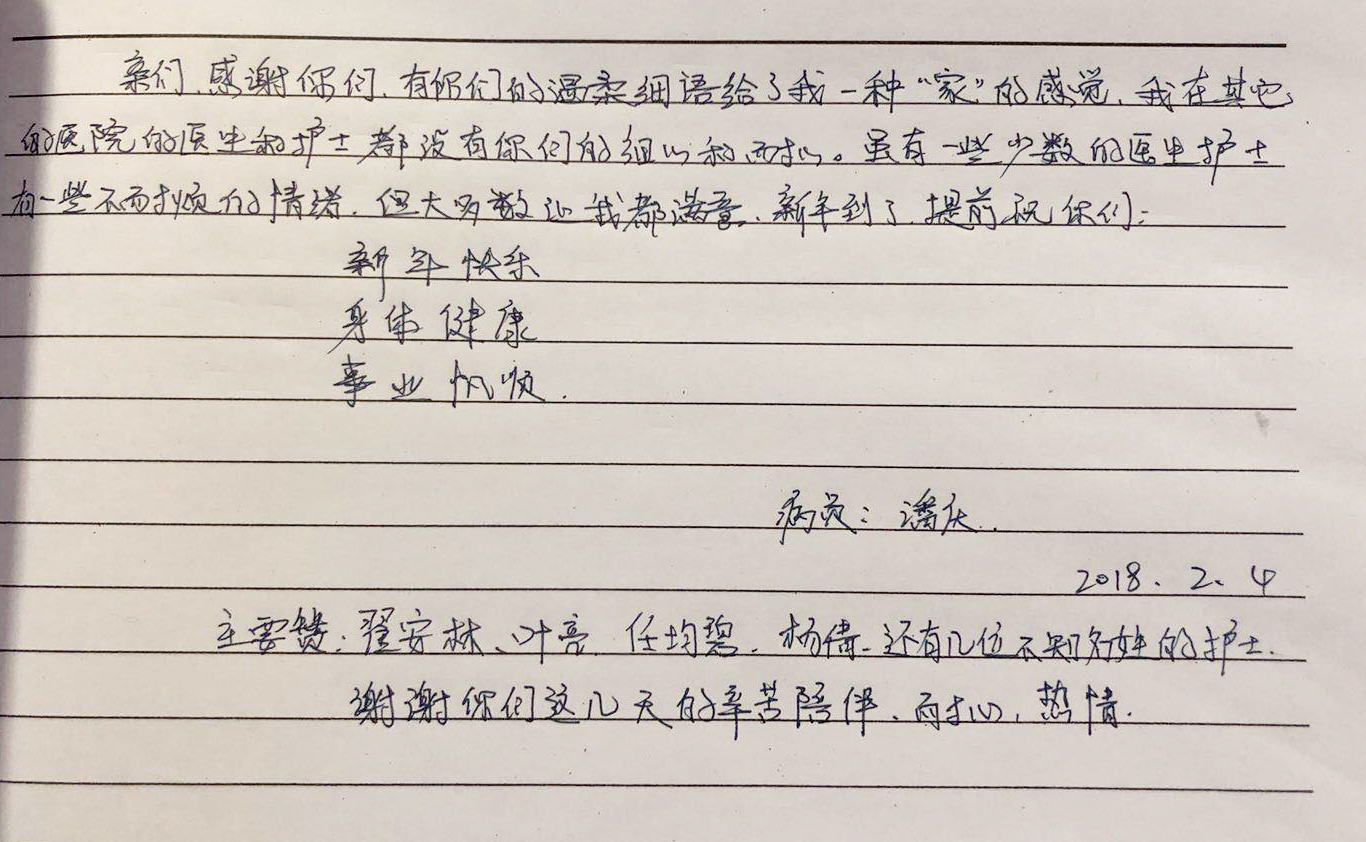 亲们，感谢你们，有你们的温柔细语给了我一种“家”的感觉，我在其它
的医院的医生和护士都没有你们的细心和耐心。虽有一些少数的医生护士
有一些不耐烦的情绪，但大多数让我都满意，新年到了，提前祝你们：
新年快乐
身体健康
事业帆顺．
病员：潘庆．
2018．2．4
主要赞：翟安林、叶亮、任均碧、杨倩、还有几位不知名姓的护士．
谢谢你们这几天的辛苦陪伴、耐心，热情．